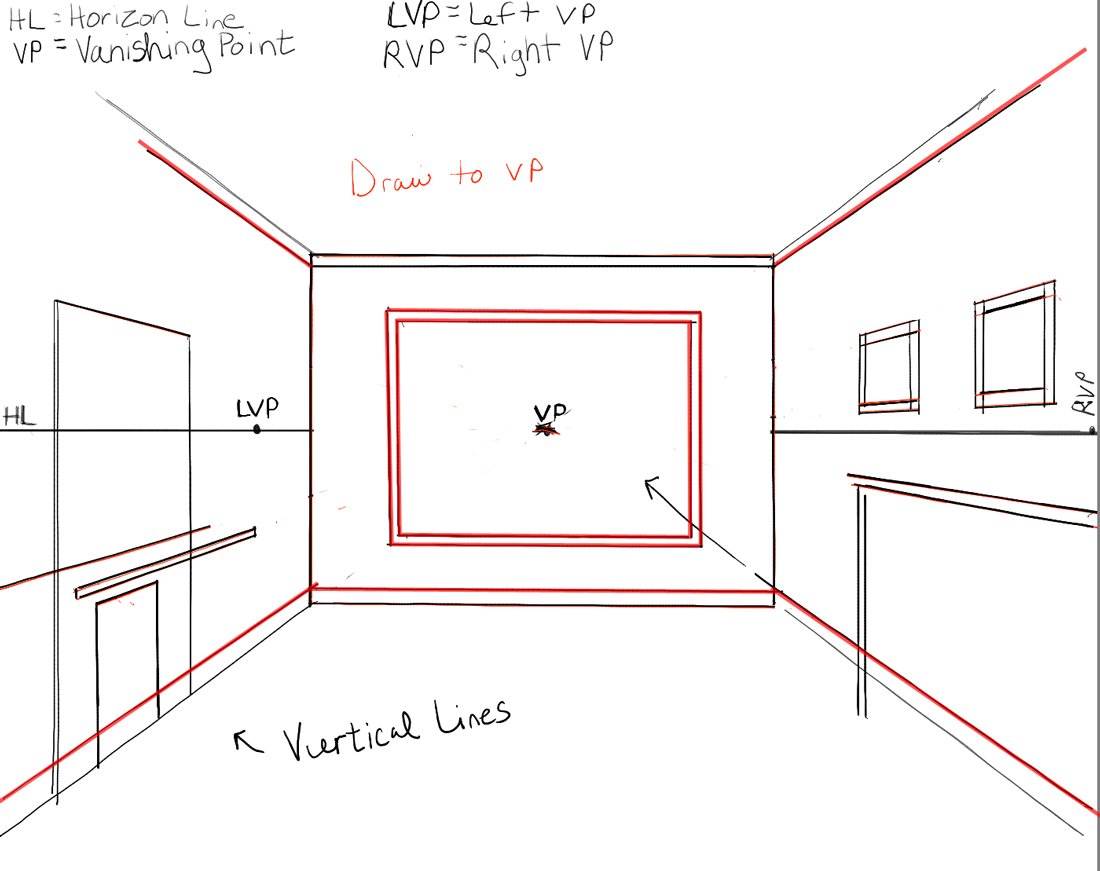 HL = Horizon Line
VP = Vanishing Point
LVP = Left VP
RVP = Right VP
Draw to VP
HL
LVP
VP
RVP
Vertical Lines